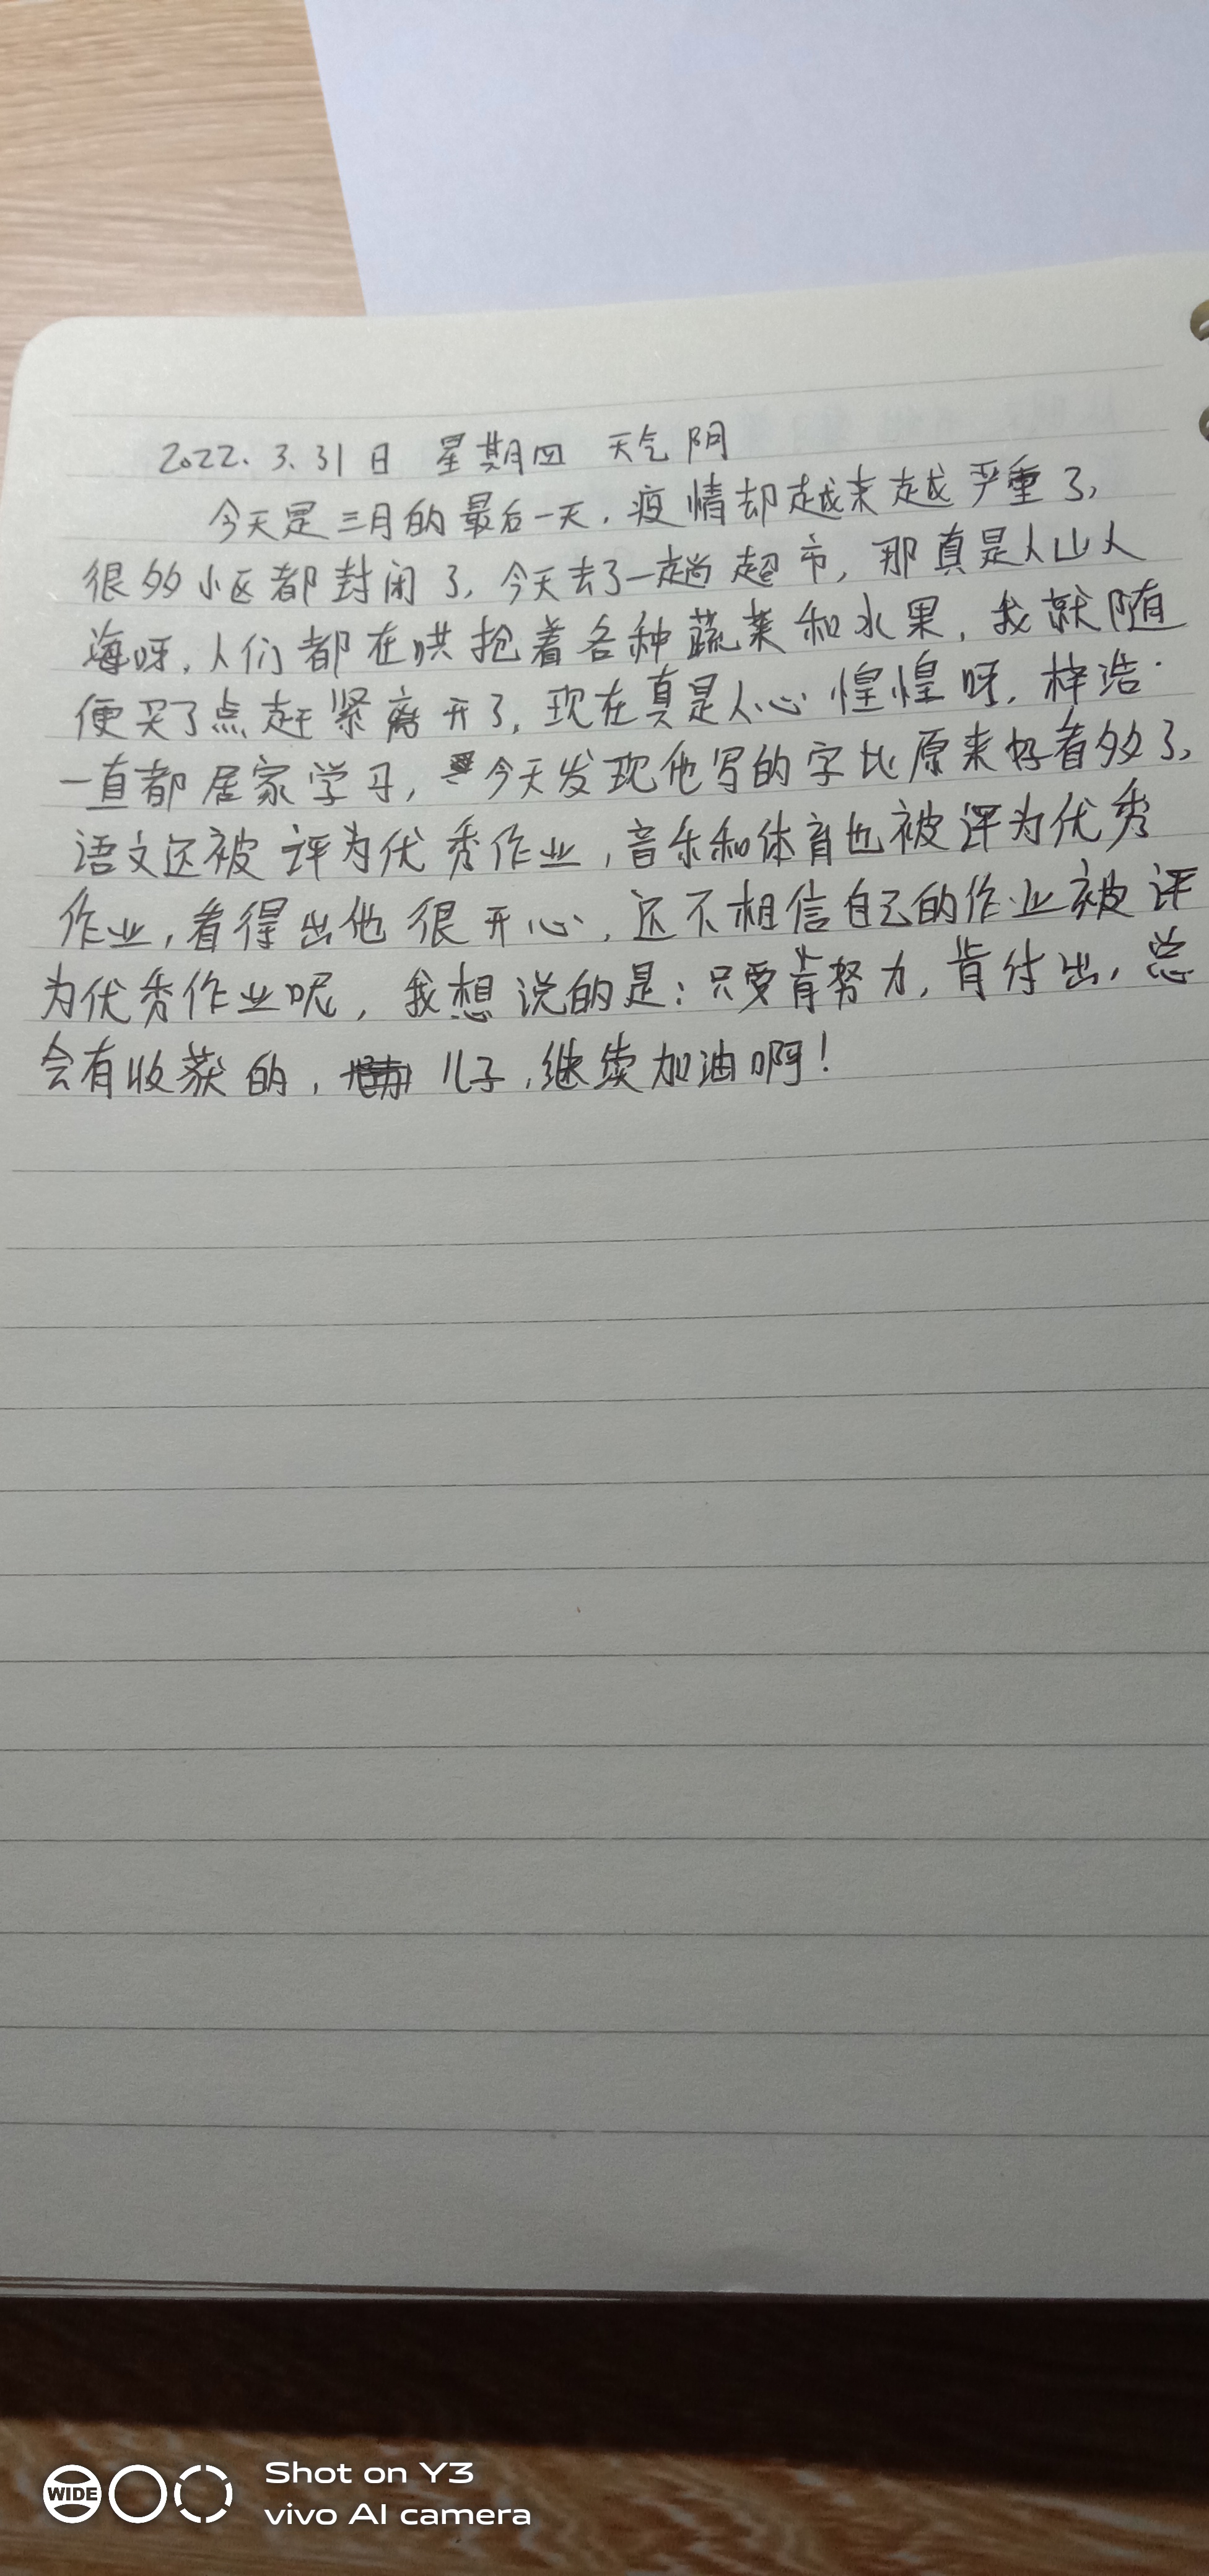 2022.3.31日 星期四 天气阴
今天是三月的最后一天，疫情却越来越严重了，
很多小区都封闭了，今天去了一趟超市，那真是人山人
海呀，人们都在哄抢着各种蔬菜和水果，我就随
便买了点赶紧离开了，现在真是人心惶惶呀，梓浩
一直都居家学习，今天发现他写的字比原来好看多了，
语文还被评为优秀作业，音乐和体育也被评为优秀
作业，看得出他很开心，还不相信自己的作业被评
为优秀作业呢，我想说的是：只要肯努力，肯付出，总
会有收获的，儿子，继续加油啊！
WIDE
Shot on Y3
vivo AI camera